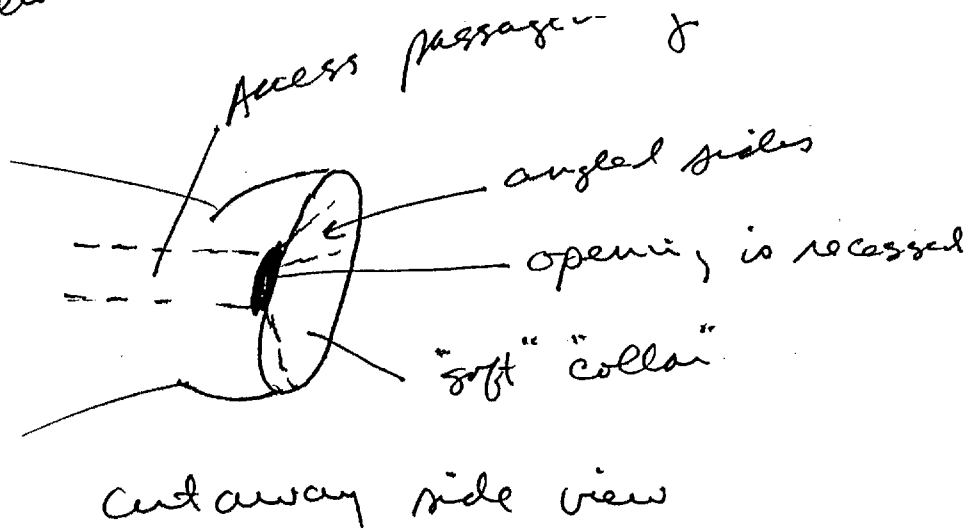 Access
angled sides
opening is recessed
"soft" "collar"
Cutaway side view